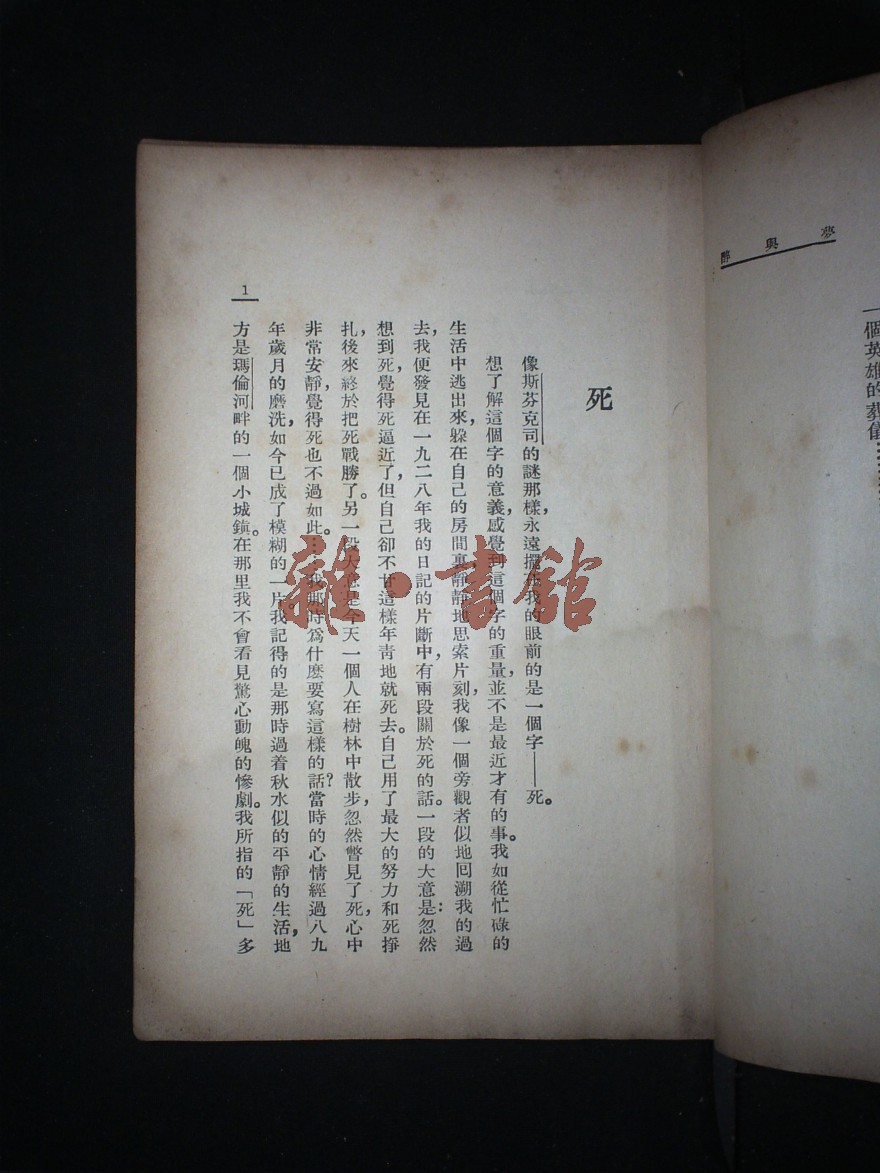 夢與醉
一個英雄的葬儀…………
死
像斯芬克司的謎那樣，永遠擺在我的眼前的是一個字——死。
想了解這個字的意義，感覺到這個字的重量，並不是最近才有的事。我如從忙碌的
生活中逃出來，躲在自己的房間裏，靜靜地思索片刻，我像一個旁觀者似地囘溯我的過
去，我便發見在一九二八年我的日記的片斷中，有兩段關於死的話。一段的大意是：忽然
想到死，覺得死逼近了，但自己卻不甘這樣年靑地就死去。自己用了最大的努力和死掙
扎，後來終於把死戰勝了。另一段大意是：今天一個人在樹林中散步，忽然瞥見了死，心中
非常安靜，覺得死也不過如此。…我那時爲什麽要寫這樣的話？當時的心情經過八九
年歲月的磨洗，如今已成了模糊的一片，我記得的是那時過着秋水似的平靜的生活，地
方是瑪倫河畔的一個小城鎮。在那里我不會看見驚心動魄的慘劇。我所指的「死」多
1
雜·書館